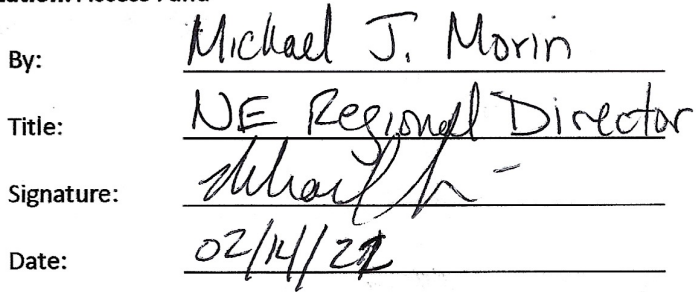 Access Fund
By: Michael J. Morin
Title: NE Regional Director
Signature:
Date: 02/14/22